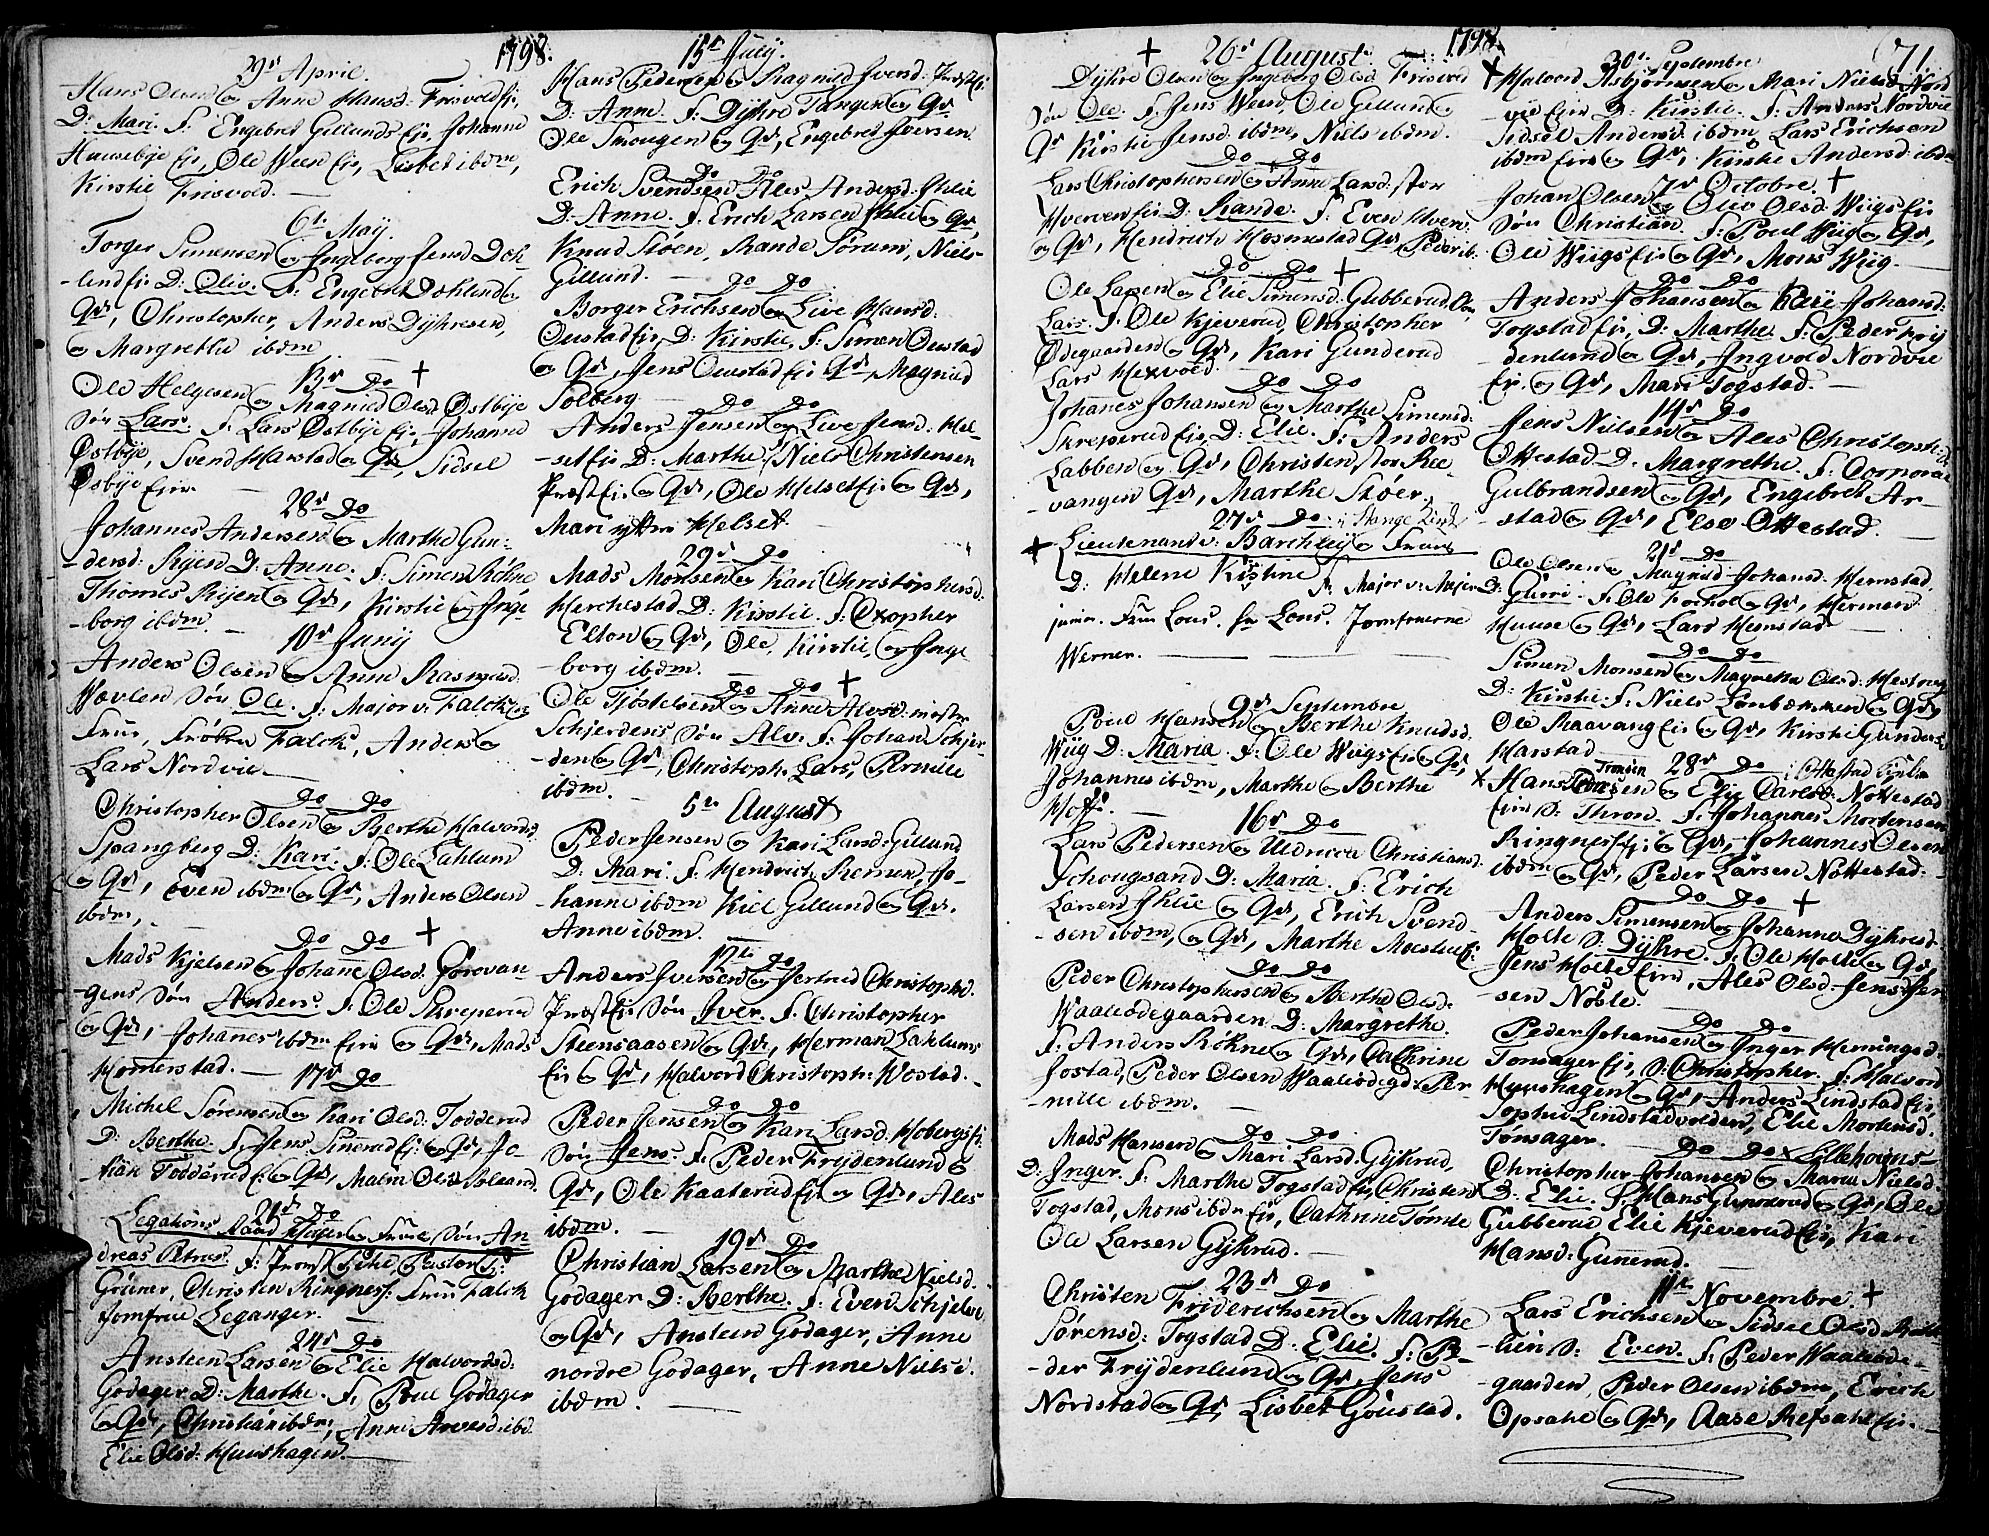 1798.
29de April.
Hans Olsen og Anne Hansd: Frisvold Ei.
D: Mari. F: Engebret Gillunds Eje, Johanne
Huusebye Eje, Ole Weën Eje, Lisbet ibdm,
Kirstie Frisvold. —
6te Maÿ.
Torger Simensen og Ingeborg Jensd Doh-
-lend Ei D: Oliv. F: Engebret Dohlend og
Qvd, Christopher, Anders Dÿhresen,
og Margrethe ibdm
13de do +
Ole Helgesen og Magnild Olsd. Østbÿe
Søn Lars. F: Lars Østbÿe Eje, Johanne
Østbÿe, Svend Harstad og Qvd, Sidsel
Østbÿe Eiere. —
28de do
Johannes Andersen og Marthe Gun-
-dersd: Rÿen D: Anne. F: Simen Røhne
Thomes Rÿen og Qvd, Kirstie og Inge
-borg ibdm. —
10de Junÿ
Anders Olsen og Anne Rasmusd.
Wævlen Søn Ole. F: Major v: Falck og
Frue, Frøken Falck, Anders og
Lars Nordvie. —
do do
Christopher Olsen og Berthe Halvorsd.
Spangberg D: Kari. F: Ole Lahlum
og Qvd, Even ibdm og Qvd, Anders Olsen
ibdm, —
do do +
Mads Kjelsen og Johañe Olsd. Gorovan
gens Søn Anders. F: Ole Skreperud
og Qvd, Johannes ibdm Eiere og Qvd, Mads
Homerstad. —
17de do
Michel Sørensen og Kari Olsd: Todderud
D: Berthe. F: Jens Sinerud Ej: og Qvd, Jo-
Todderud E: og Qvd, Malin Olsd
21de do
Legations Raad og Frue Søn An
dreas Petrus. F: Provst Pihl, Pastor P:
Grüner, Christen Ringnes, Frue Falck
Jomfrue Leganger. —
24de do
Ansteen Larsen og Elie Halvorsd:
Godager D: Marthe. F: Poul Godager
og Qvd, Christian ibdm, Anne Arvesd ibd
Elie Olsd: Huushagen. —
15de Julÿ.
Hans Pedersen og Ragnild Iversd: Præst Ei:
D: Anne. F: Dÿhre Tangen og Qvd
Ole Smougen og Qvd, Engebret Iversen.
do do
Erich Svendsen og Ales Andersd: Ihlie
D: Anne. F: Erich Larsen Ihlie og Qvd,
Knud Støen, Rande Sørum, Niels
Gillund. —
do do
Borger Erichsen og Live Hansd:
Oustad Ei, D: Kirstie. F: Simen Oustad
og Qvd, Jens Oustad Ei: Qvd, Magnild
Solberg —
do do
Anders Jensen og Live Jensd: Hel-
-set Ei D: Marthe. F: Niels Christensen
Præst Ei og Qvd, Ole Helset Ei: og Qvd,
Mari Helset. —
29de do
Mads Monsen og Kari Christophersd:
Herchestad D: Kirstie. F: Cxopher
Elton og Qvd, Ole, Kirstie, og Inge
-borg ibdm. —
do do +
Ole Tjøstelsen og Anne Alvsd:
Schjerdens Søn Alv. F: Johan Schjer-
-den og Qvd, Christoph. Lars, Pernille
ibdm. —
5te August
Peder Jensen og Kari Larsd: Gillund
D: Mari. F: Hendrich Remen, Jo-
-hanne ibdm Kiel Gillund og Qvd.
Anne ibdm. —
12te do
Anders Iversen og Jertrud Christophd.
Præst Ei Søn Iver. F: Christopher
Steensaasen og Qvd, Herman Lahlums
Ei og Qvd, Halvord Christoph: Wostad. —
do do
Peder Jensen og Kari Larsd: Hobergs Ei
Søn Jens. F: Peder Frÿdenlund og
Qvd, Ole Kaaterud Ei og Qvd, Ales
ibdm. —
19de do
Christian Larsen og Marthe Nielsd.
Godager D: Berthe. F: Even Schjelve
og Qvd, Ansteen Godager, Anne
nordre Godager, Anne Nielsd.
ibdm. —
1798.
+ 26de August.
Dÿhre Olsen og Ingeborg Olsd. Frisvold
Søn Ole. F: Jens Weën, Ole Gillund og
Qvd Kirstie Jensd: ibdm, Niels ibdm.
do do
Lars Christophersen og Anne Larsd: stor
Hverven Ei D: Rande. F: Even Hverv:
og Qvd, Hendrich Hosmestad Qvd, Peder ib.
do do +
Ole Larsen og Elie Simensd: Gubberud Søn
Lars. F: Ole Kjeverud, Christopher
Ødegaarden og Qvd, Kari Gunderud
Lars Hexvold.
do do
Johanes Johansen og Marthe Simensd:
Skreperud Ei, D: Elie. F: Anders
Labben og Qvd, Christen, stor Ree
-vangen Qvd, Marthe Støer. —
27de do i Stange Kirk
+ Lieutenant v: Barchleÿ og Frues
D: Helene Kistine F: Major v: Meier
Frue Lous. Hr Lous. Jomfruerne
Werner. —
9de Septembre
Poul Hansen og Berthe Knudsd.
Wiig D: Maria. F: Ole Wiigs Ei og Qvd,
Johannes ibdm, Marthe og Berthe
Hoff. —
16de do
Lars Pedersen og Uldricca Christiansd:
Schougsand D: Maria. F: Erich
Larsen Ihlie og Qvd, Erich Svend-
-sen ibdm, og Qvd, Marthe Moestue Ei:
do do
Peder Christophersen og Berthe Olsd.
Waaleødegaarden D: Margrethe.
F: Anders Røhne og Qvd, Cathrine
Jostad, Peder Olsen Waaleødegd: Per
-nille ibdm. —
do do
Mads Hansen og Mari Larsd: Gÿhrud,
D: Inger. F: Marthe Togstad Ei, Christen
Togstad, Mons ibdm Eje, Cathrine Tømte
Ole Larsen Gÿhrud. —
23de do
Christen Friderichsen og Marthe
Sørensd: Togstad D: Elie. F: Pe-
-der Frÿdenlund og Qvd, Jens
Nordstad og Qvd, Lisbet Goustad.
71.
30te Septembre
+ Halvord Asbjørnsen og Mari Nielsd. Nord
-vie Eier D: Kirstie. F: Anders Nordvie
Sidsel Andersd: ibdm, Lars Erichsen
ibdm Eiere og Qvd, Kirstie Andersd: ibd.
7de Octobre. +
Johan Olsen og Oliv Olsd: Wiigs Eie
Søn Christian. F: Poul Wiig og Qvd,
Ole Wiigs Ei og Qvd, Mons Wiig. —
do do
Anders Johansen og Johansd:
Togstad Ei, D: Marthe. F: Peder Frÿ
-denlund og Qvd, Ingvold Nordvie
Ei: og Qvd, Mari Togstad. —
14de do
Jens Nielsen og Ales Christoph:
Ottestad D: Margrethe. F: Corporal
Gulbrandsen og Qvd, Engebret Ar-
-stad og Qvd, Else Ottestad. —
21de do
Ole Olsen og Magnild Johansd: Hemstad
D: Guri. F: Ole Forhoe og Qvd, Herman
Huuse og Qvd, Lars Hemstad. —
do do
Simen Monsen og Magrethe Olsd:
D: Kirstie F: Niels og Qvd,
Ole Raavang Ei og Qvd, Kirsti Gundersd
Harstad —
28de do i Ottestad Kirke
x Hans Tronsen og Elie Carlsd: Nottestad
Eiere S: Thron. F: Johannes Mortensen
Ringnes Ei: og Qvd, Johannes Olsen
ibdm og Qvd, Peder Larsen Nøttestad. —
do do +
Anders Simensen og Johanna Dÿhresd.
Holte S: Dÿhre. F: Ole Holte og Qvd,
Jens Holte Eiere, Ales Olsd. Jens Jen
-sen Nøsle. —
do do
Peder Johansen og Inger Hemingsd.
Tønsager Ei, S: Christopher. F: Halvord
Huushagen og Qvd, Anders Lindstad Ei,
Sophie Lindstadvolden, Elie Mortensd.
Tønsager. —
do do x Ellehougs-
Christopher Johansen og Maria Nielsd.
D: Elie. F: Hans Gunerud og Qvd, Ole
Gubberud Elie Kjeverud Ei, Kari
Hansd: Gunerud. —
11te Novembre. +
Lars Erichsen og Sidsel Olsd
-lien S: Even. F: Peder Waaleøde-
-gaarden, Peder Olsen ibdm, Erich
Opsahl og Qvd, Aase Refsahl Ei. —